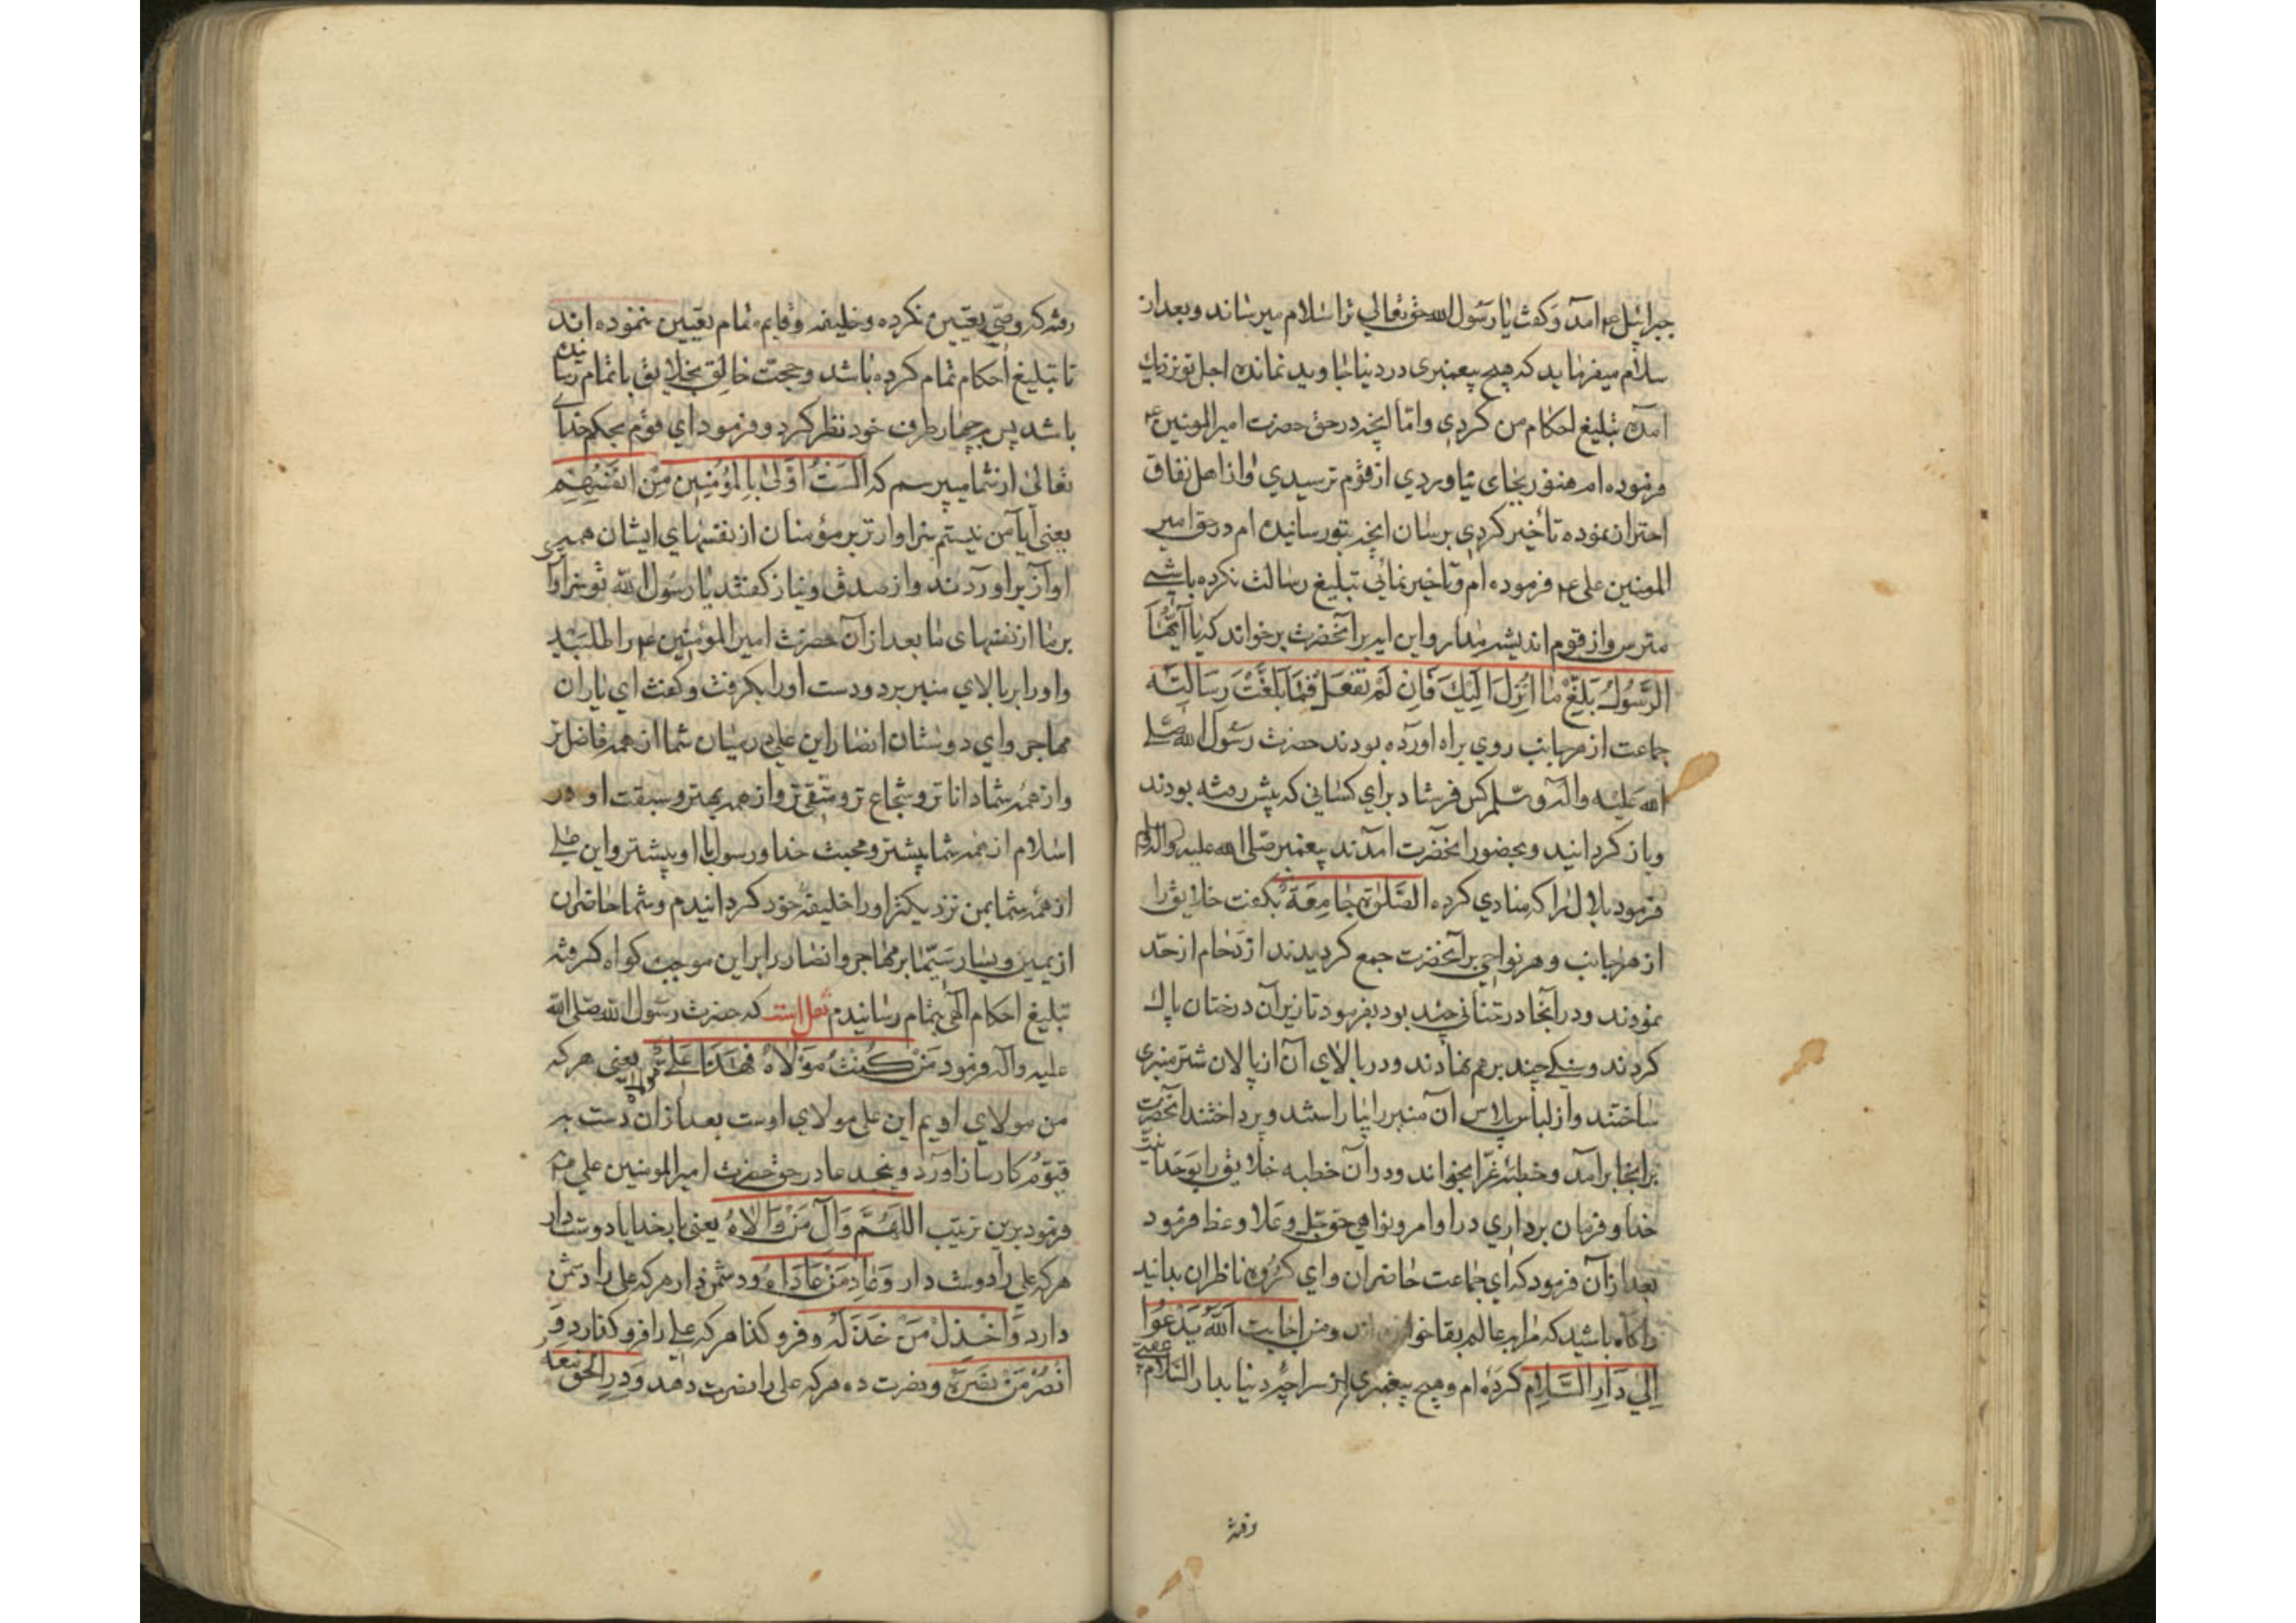 جبرائیل ع م امد و کفت یا رسول الله حق تعالی ترا سلام میرساند و بعد از
سلام میفرماید که هیچ پیغمبری در دنیا جاوید نمانده اجل تو نزدیک
آمده تبلیغ احکام من کردی و امّا انچه در حق حضرت امیر المومنین ع م
فرموده ام هنوز بجای نیاوردی از قوم ترسیدی و از اهل نفاق
احتراز نموده تأخیر کردی برسان انچه بتو رسانیده ام در حق امیر
المومنین علی ع م فرموده ام و تأخیر نمائی تبلیغ رسالت نکرده باشی
مترس و از قوم اندیشه مدار و این ایه بر آنحضرت بر خواند که یا آیُّهَا
الرَّسُولُ بَلِّغْ مٰا اُنْزِلَ اِلَیْكَ فَاِنْ لَمْ تَفْعَلْ فَمٰا بَلَّغْتَ رِسَالَتَه
جماعت از هر جانب روی براه اورده بودند حضرت رسول الله صلی
الله علیه و آله و سلم کس فرستاد برای کسانی که پیش رفته بودند
و باز کردانید و بحضور انحضرت آمدند پیغمبر صلی الله علیه و اله و سلم
فرمود بلال را که منادی کرده الصَّلوٰة جٰامِعَةْ بکفت خلایق را
از هر جانب و هر نواحی بر آنحضرت جمع کردیدند ازدحام از حدّ
نمودند و در آنجا درختانی چند بود بفرمود تا زیر آن درختان پاك
کردند و سنکی چند بر هم نهادند و در بالای آن از پالان شتر منبری
ساختند و از لباس پلاس آن منبر را بیاراستند و پرداختند آنحضرت
بر انجا برآمد و خطبهٔ غرّا بخواند و در آن خطبه خلایق را بوحدانیت
خدا و فرمان برداری در اوامر و نواهی حق جلّ و علا وعظ فرمود
بعد از آن فرمود که ای جماعت حاضران و ای کروه ناظران بدانید
و اکاه باشید که مرا بعالم بقا خوانده اند و من اجابت اَللّٰهُ یَدْعُوٰا
اِلیٰ دَارِ السَّلاٰمِ کرده ام و هیچ پیغمبری از سراچهٔ دنیا بدار السّلام عقبی
رفته
رفته که وصی تعیین نکرده و خلیفه و قایم مقام تعیین ننموده اند
تا تبلیغ احکام تمام کرده باشد و حجّت خالق بخلایق باتمام رسانیده
باشد پس بر چهار طرف خود نظر کرد و فرمود ای قوم بحکم خدای
تعالی از شما میپرسم که اَلَسْتُ اَوْلیٰ بِالْمُؤْمِنِینَ مِنْ اَنْفُسِهِمْ
یعنی آیا من نیستم سزاوارتر بر مؤمنان از نفسهای ایشان همه
اواز براوردند و از صدق و نیاز کفتند یا رسول الله تو سزاواری
بر ما از نفسهای ما بعد از آن حضرت امیر المؤمنین ع م را طلبید
و اورا بر بالای منبر برد و دست اورا بکرفت و کفت ای یاران
مهاجر و ای دوستان انصار این علی در میان شما از همه فاضل تر
و از همه شما دانا تر و شجاع تر و متّقی تر و از همه بهتر و سبقت او در
اسلام از همه شما بیشتر و محبت خدا و رسول با او بیشتر و این علی
از همه شما بمن نزدیکتر اورا خلیفهٔ خود کردانیدم و شما حاضران
از یمین و یسار سیّما بر مهاجر و انصار را بر این موجب کواه کرفته
تبلیغ احکام آلهی بتمام رسانیدم نقل است که حضرت رسول الله صلی الله
علیه و آله فرمود مَنْ کُنْتُ مَوْلَاهُ فَهَذَا عَلِیٌّ مَوْلَاهُ یعنی هر که
من مولای اویم این علی مولای اوست بعد از ان دست به
قیّوم کارساز اورد و بجد دعا در حق حضرت امیر المومنین علی ع م
فرمود برین ترتیب اللهُمَّ وَآلِ مَنْ وَالاٰهُ یعنی بار خدایا دوست دار
هر که علی را دوست دار وَعَادِ مَنْ عَادَاهُ و دشمن دار هر که علی را دشمن
دارد وَاخْذُلْ مَنْ خَذَلَهُ و فرو کذا هر که علی را فرو کذارد وَ
انْصُرْ مَنْ نَصَرَهُ و نصرت ده هر که علی را نصرت دهد وَدِرِ الْحَقَّ مَعَهُ